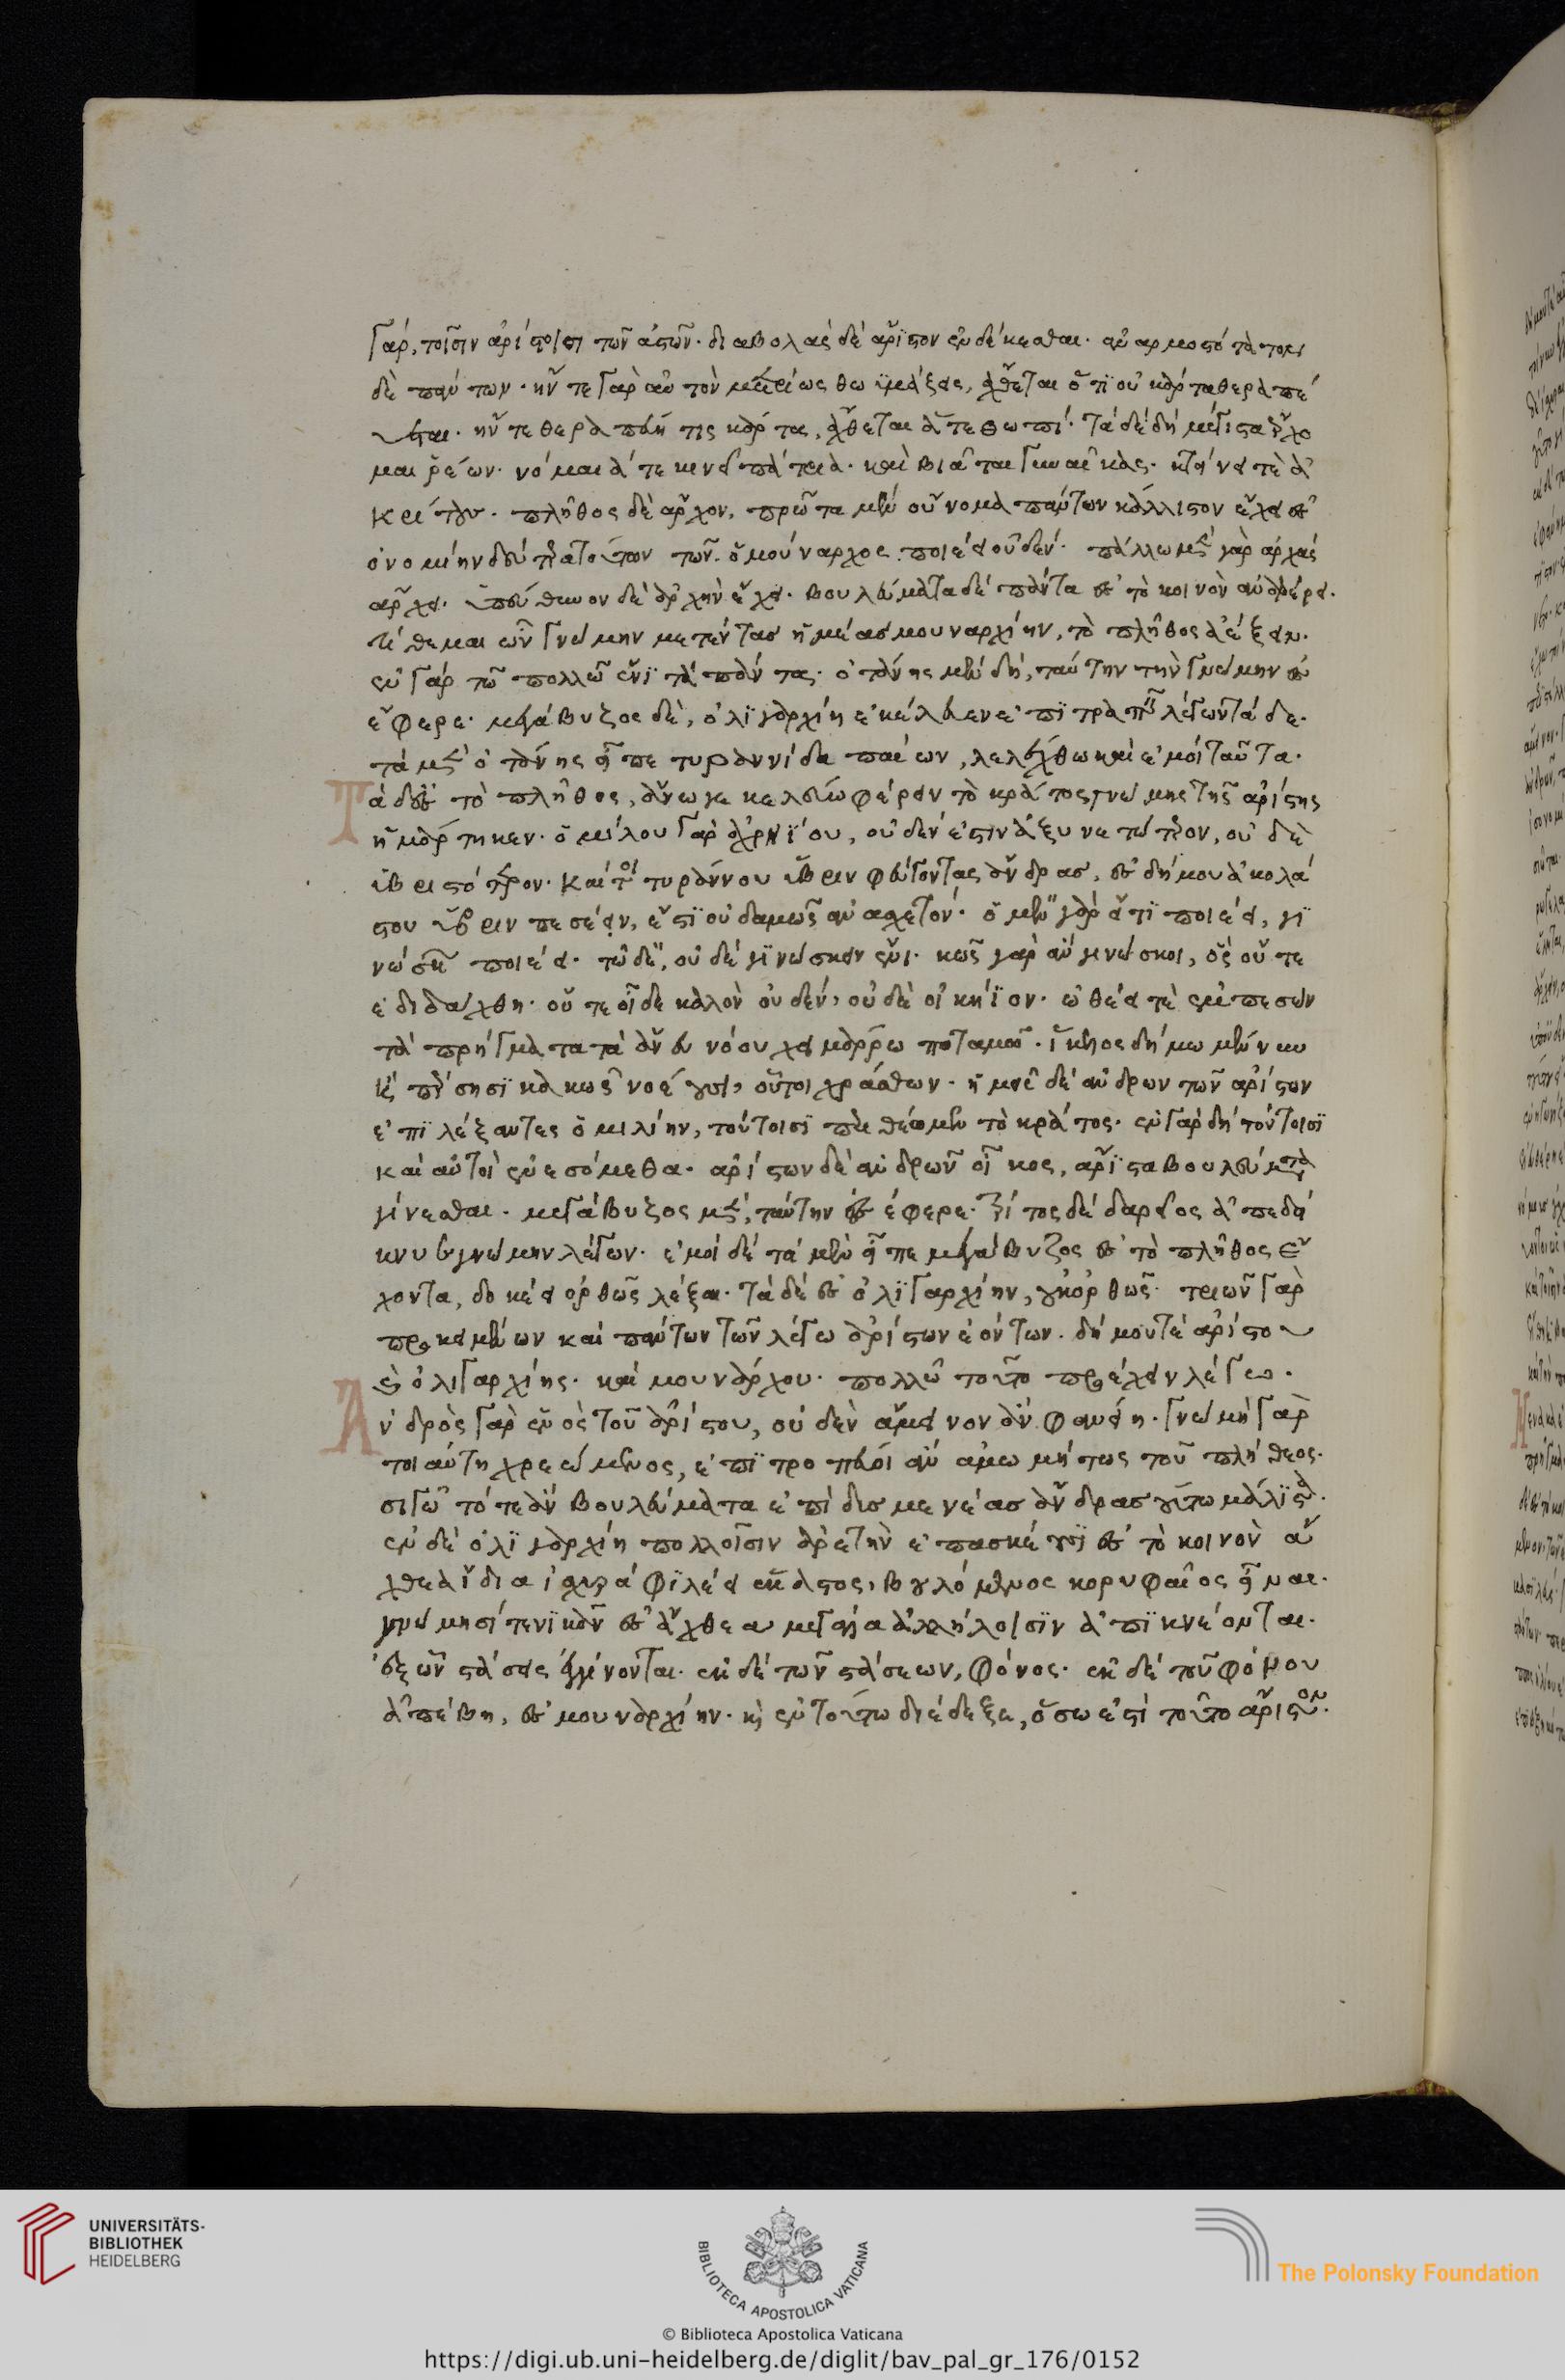 γάρ, τοῖσιν ἀρίστοισι τῶν ἀστῶν· διαβολὰς δὲ ἄριστον ἐνδέκεσθαι· ἀναρμοστότατοσ
δὲ πάντων· ἤν τε γὰρ αὐτὸν μετρίως θωϋμάζῃς, ἄχθεται ὅτι οὐ κάρτα θεραπεύ
εται· ἤν τε θεραπεύῃ τις κάρτα, ἄχθεται ἅτε θωπί· τὰ δὲ δὴ μέγιστα ἔρχο
μαι ἐρέων· νόμαιά τε κινεῖ πάτρια· καὶ βιᾶται γυναῖκας· κτείνει τὲ ἀ
κρίτους· πλῆθος δὲ ἄρχον, πρῶτα μὲν οὔνομα πάντων κάλλιστον ἔχει ἰσ
ονομίην δεύτερα τούτων τῶν ὁ μούναρχος ποιέει οὐδέν· πάλλω μὲν γὰρ ἀρχὰς
ἄρχει· ὑπεύθυνον δὲ ἀρχὴν ἔχει· βουλεύματα δὲ πάντα ἐς τὸ κοινὸν ἀναφέρει.
τίθεμαι ὦν γνώμην μετέντας ἡμέας μουναρχίην, τὸ πλῆθος ἀέξειν.
ἐν γὰρ τῶ πολλῶ ἔνι τὰ πάντα· ὀτάνης μὲν δὴ, ταύτην τὴν γνώμην ἐσ
έφερε· μεγάβυζος δὲ, ὀλιγαρχίη ἐκέλευε ἐπιτραπεῖν λέγων τάδε.
τὰ μὲν ὀτάνης εἶπε τυραννίδα παύων, λελέχθω καὶ ἐμοὶ ταῦτα.
Τὰ δ' ἐς τὸ πλῆθος, ἄνωγε κελεύω φέρειν τὸ κράτος γνώμης τῆς ἀρίστης
ἡμάρτηκεν· ὁμίλου γὰρ ἀχρηΐου, οὐδέν ἐστιν ἀξυνετώτερον, οὐδὲ
ὑβριστότερον· καί τοι τυράννου ὕβριν φεύγοντας ἄνδρας, ἐς δήμου ἀκολά
στου ὕβριν πεσέειν, ἔστι οὐδαμῶς ἀνασχετόν· ὁ μὲν γὰρ εἴ τι ποιέει, γι
νώσκων ποιέει· τῶ δὲ, οὐδὲ γινώσκειν ἔνι· κῶς γὰρ ἂν γινώσκοι, ὃς οὔτε
ἐδιδάχθη· οὔτε οἶδε καλὸν οὐδέν, οὐδὲ οἰκήϊον· ὠθέει τὲ ἐμπεσὼν
τὰ πρήγματα τὰ ἄνευ νόου χειμάρρω ποταμῶ ἴκελος δήμω μὲν νυν
οἳ πέρσῃσι κακῶς νοέουσι, οὗτοι χράσθων· ἡμεῖς δὲ ἀνδρῶν τῶν ἀρίστων
ἐπιλέξαντες ὁμιλίην, τούτοισι περιθέωμεν τὸ κράτος· ἐν γὰρ δὴ τούτοισι
καὶ αὐτοὶ ἐνεσόμεθα· ἀρίστων δὲ ἀνδρῶν οἶκος, ἄριστα βουλεύματα
γίνεσθαι· μεγάβυζος μὲν, ταύτην ἐσέφερε· τρίτος δὲ δαρεῖος ἀπεδεί
κνυε γνώμην λέγων· ἐμοὶ δὲ τὰ μὲν εἶπε μεγάβυζος ἐς τὸ πλῆθος ἔ
χοντα, δοκέει ὀρθῶς λέξαι· τὰ δὲ ἐς ὀλιγαρχίην, οὐκ ὀρθῶς· τριῶν γὰρ
προκειμένων καὶ πάντων τῶν λέγω ἀρίστων ἐόντων· δήμου τὲ ἀρίστου
καὶ ὀλιγαρχίης· καὶ μουνάρχου· πολλῶ τοῦτο προέχειν λέγω.
Ἀνδρὸς γὰρ ἑνὸς τοῦ ἀρίστου, οὐδὲν ἄμεινον ἂν φανείη· γνώμη γὰρ
τοιαύτη χρεώμενος, ἐπιτροπεύοι ἂν ἀμωμήτως τοῦ πλήθεος·
σιγῶτό τε ἂν βουλεύματα ἐπὶ δυσμενέας ἄνδρας οὕτω μάλιστα.
ἐν δὲ ὀλιγαρχίη πολλοῖσιν ἀρετὴν ἐπασκέουσι ἐς τὸ κοινὸν ἄ
χθεα ἴδια ἰσχυρὰ φιλέει ἕκαστος, βουλόμενος κορυφαῖος εἶναι·
γνώμῃσί τε νικᾶν ἐς ἄχθεα μεγάλα ἀλλήλοισιν ἀπικνέονται.
ἐξ ὧν στάσιες ἐγγίνονται· ἐκ δὲ τῶν στάσεων, φόνος· ἐκ δὲ τοῦ φόνου
ἀπέβη, ἐς μουναρχίην· καὶ ἐν τούτω διέδεξε, ὅσω ἐστὶ τοῦτο ἄριστον.
UNIVERSITÄTS-
BIBLIOTHEK
HEIDELBERG
BIBLIOTECA APOSTOLICA VATICANA
© Biblioteca Apostolica Vaticana
The Polonsky Foundation
https://digi.ub.uni-heidelberg.de/diglit/bav_pal_gr_176/0152